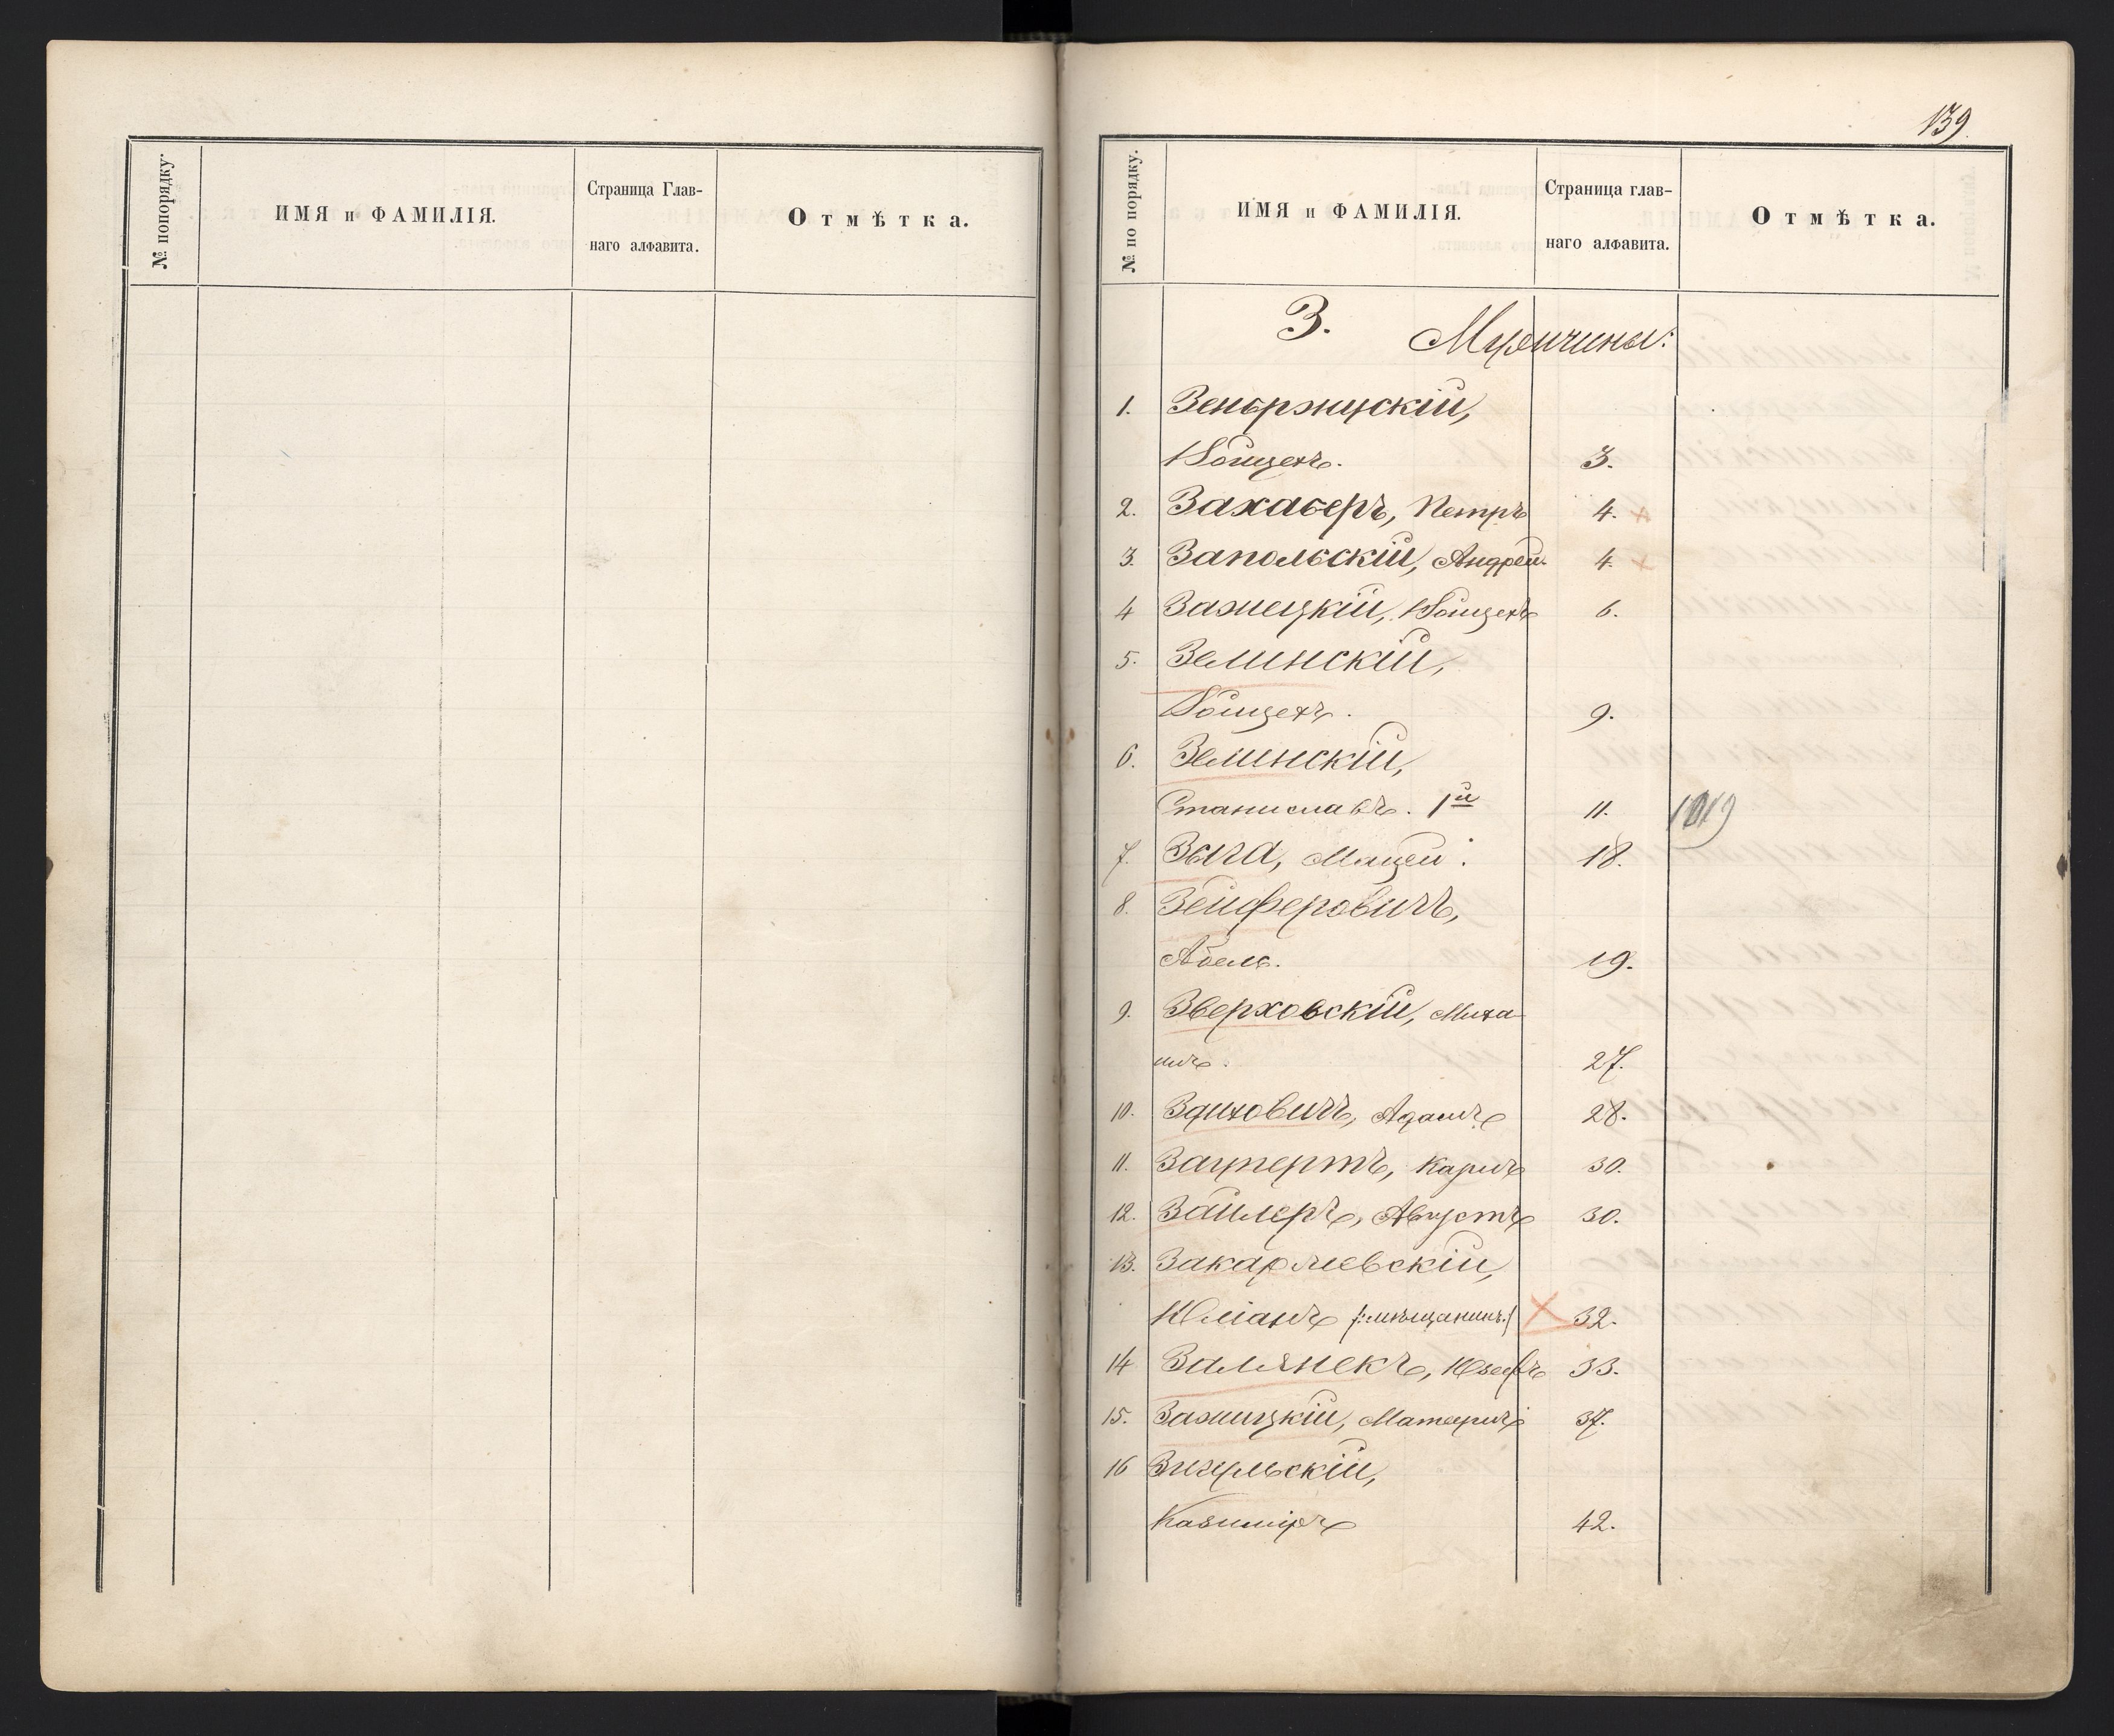 № попорядку.
ИМЯ и ФАМИЛІЯ.
Страница Глав-
наго алфавита.
Отмѣтка.
139
№ по порядку.
ИМЯ и ФАМИЛІЯ.
Страница глав-
наго алфавита.
Отмѣтка.
З. Мужчины:
1. Венгржицкій,
Войцехъ. 3.
2. Захаберъ, Петръ 4.
3. Запольскій, Андрей. 4.
4 Зажецкій, Войцехъ 6.
5. Зелинскій,
Войцехъ. 9.
6. Зелинскій,
Станиславъ. 1й 11. 1019
7. Зыга, Мацей. 18.
8. Зейферовичъ,
Абель. 19.
9. Зверховскій, Миха-
илъ. 27.
10. Здиховичъ, Адамъ 28.
11. Карлъ 30.
12. Зайлеръ, Августъ 30.
13. Закаржевскій,
Юліанъ /:мѣщанинъ:/ 32.
14 Залянекъ, Юзефъ 33.
15. Зажицкій, 37.
16 Зигульскій,
Казимиръ 42.